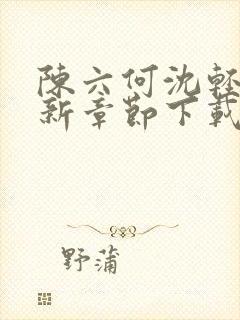 陳六何沈輕
新章節下載
野蒲